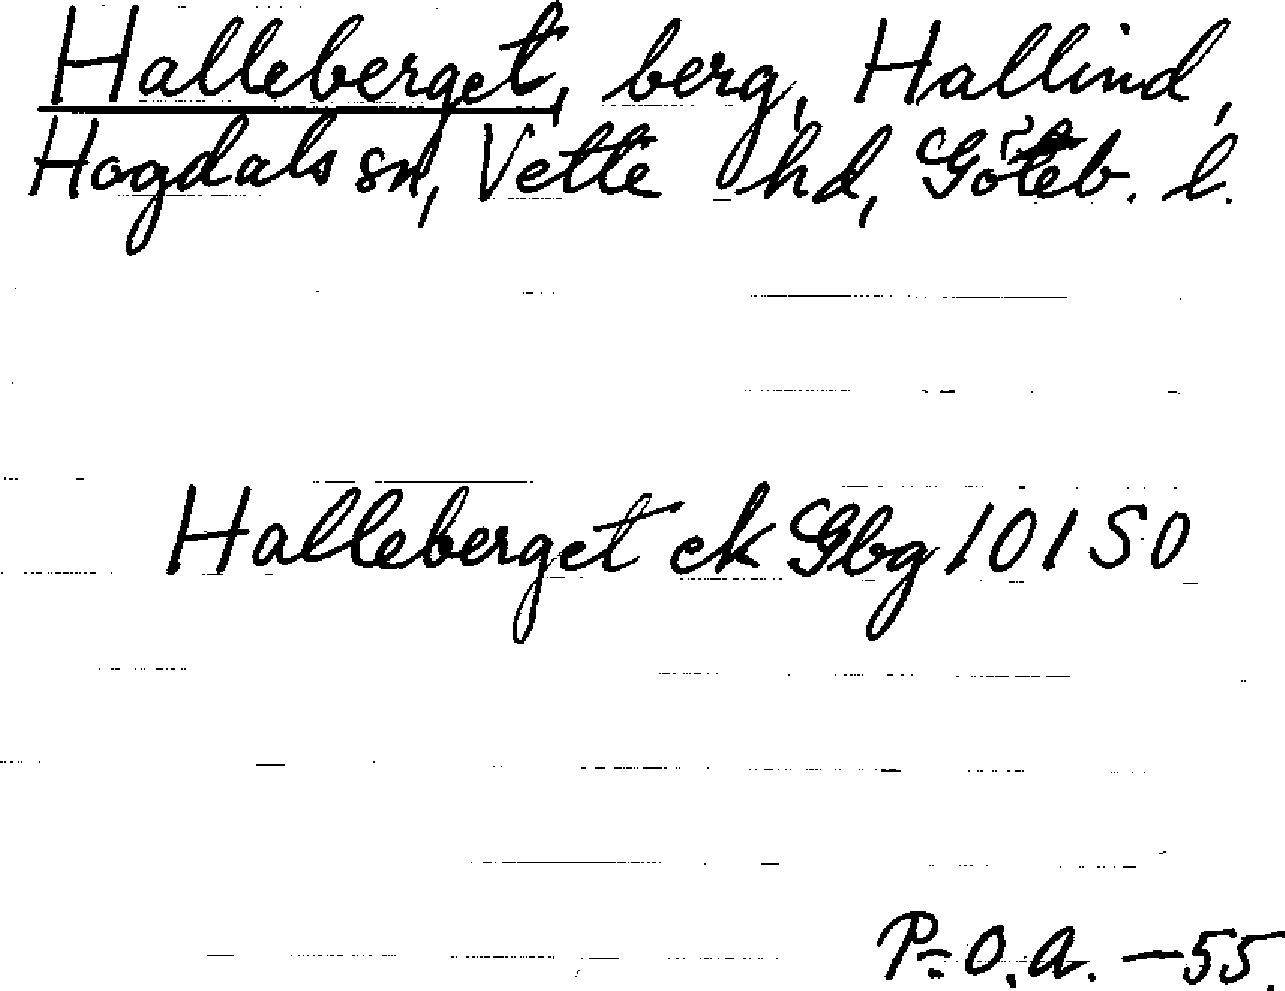 Halleberget, berg, Hallind,
Hogdals sn, Vette hd, Göteb. l.
Halleberget ek Gbg 10150
P=O.A. -55.